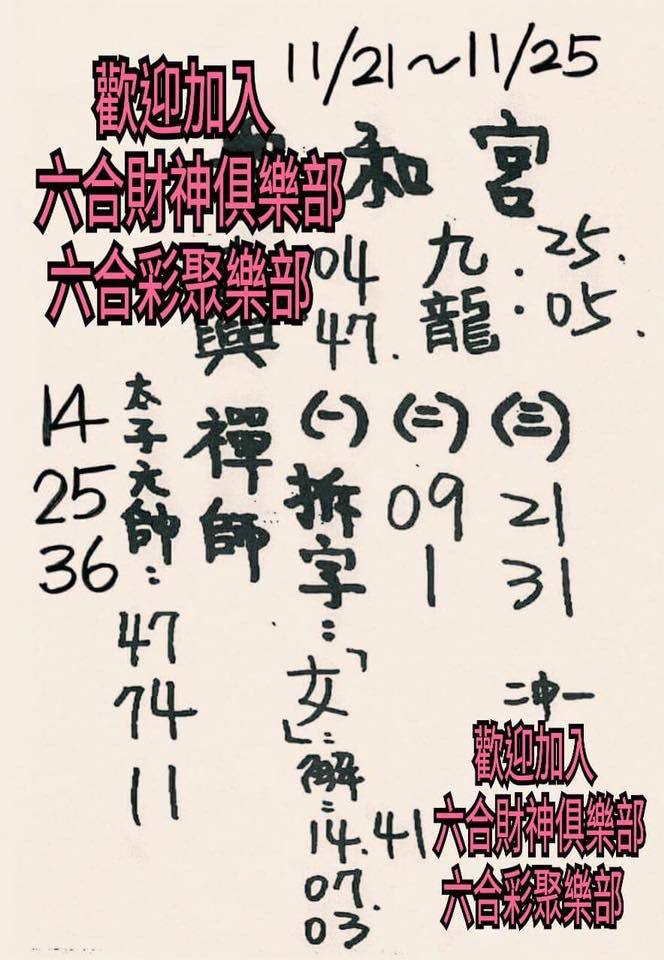 11/21～11/25
歡迎加入
六合財神俱樂部
六合彩聚樂部
和宮
興
04
47.
九龍:
25.
05.
14
25
36
太子元帥:
47
74
11
禪師
(一)
拆字:「女」:解:
14.41
07.
03
(二)
09
1
(三)
21
31
二中一
歡迎加入
六合財神俱樂部
六合彩聚樂部